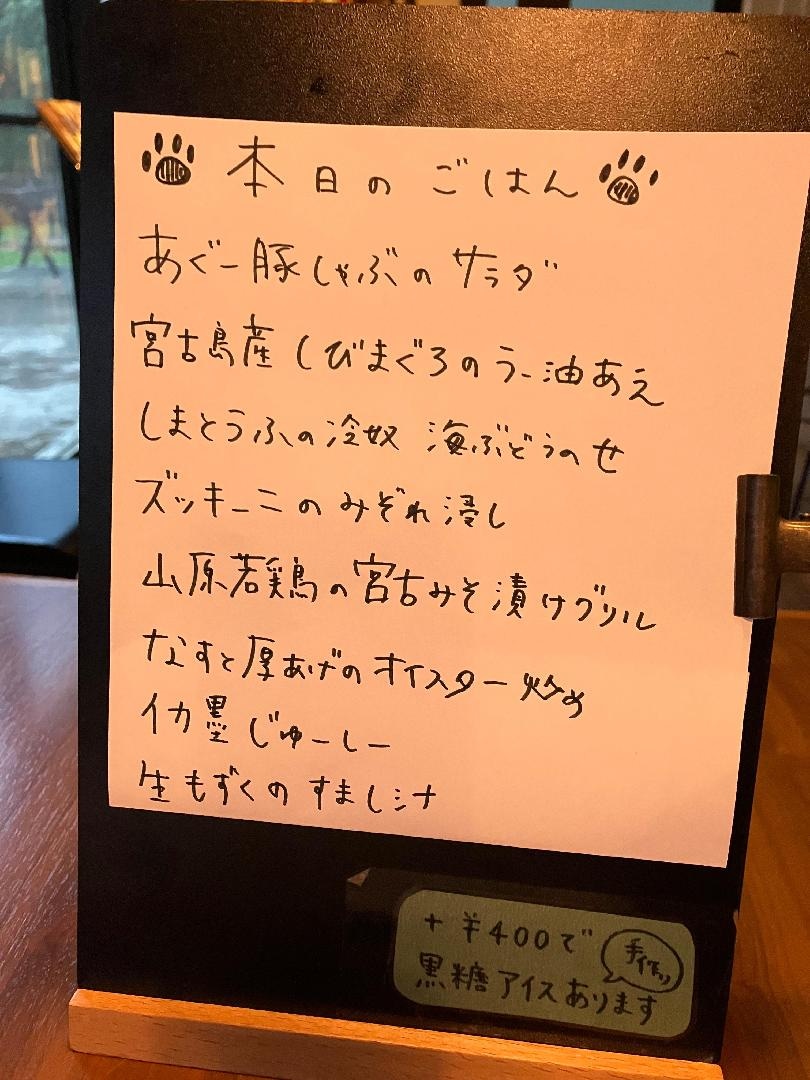 本日のごはん
あぐー豚しゃぶのサラダ
宮古島産しびまぐろのラー油あえ
しまとうふの冷奴 海ぶどうのせ
ズッキーニのみぞれ浸し
山原若鶏の宮古みそ漬けグリル
なすと厚あげのオイスター炒め
イカ墨じゅーしー
生もずくのすまし汁
+¥400で
手作り
黒糖アイスあります